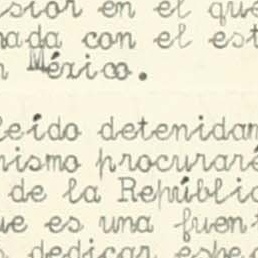 sion en el que
nada con el est
n México.
leido detenidam
nismo procuraré
de la Repúblic
ue es una fuen
dedicar espe